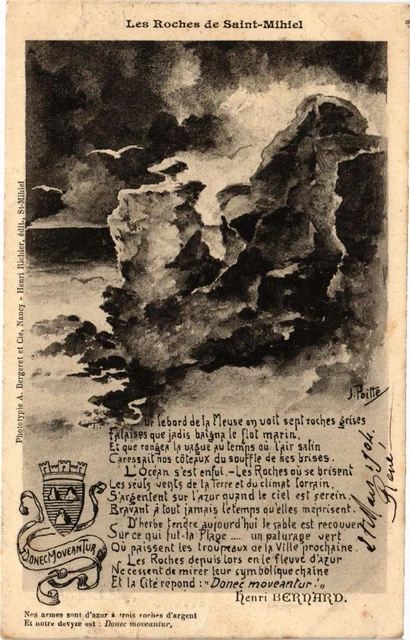 Les Roches de Saint-Mihiel
Phototypie A. Bergeret et Cie, Nancy - Henri Richier, édit., St-Mihiel
J. Poitte
Sur le bord de la Meuse on voit sept roches grises
Falaises que jadis baigna le flot marin,
Et que rongea la vague au temps où l'air salin
Caressait nos côteaux du souffle de ses brises.
L'Océan s'est enfui. - Les Roches où se brisent
Les seuls vents de la Terre et du climat lorrain,
S'argentent sur l'azur quand le ciel est serein,
Bravant à tout jamais le temps qu'elles méprisent.
D'herbe tendre aujourd'hui le sable est recouvert
Sur ce qui fut la Plage .... un pâturage vert
Où paissent les troupeaux de la Ville prochaine.
Les Roches depuis lors en le fleuve d'azur
Ne cessent de mirer leur symbolique chaîne
Et la Cité répond : "Donec moveantur !"
Henri BERNARD.
DONEC MOVEANTUR
Nos armes sont d'azur à trois roches d'argent
Et notre devyze est : Donec moveantur.